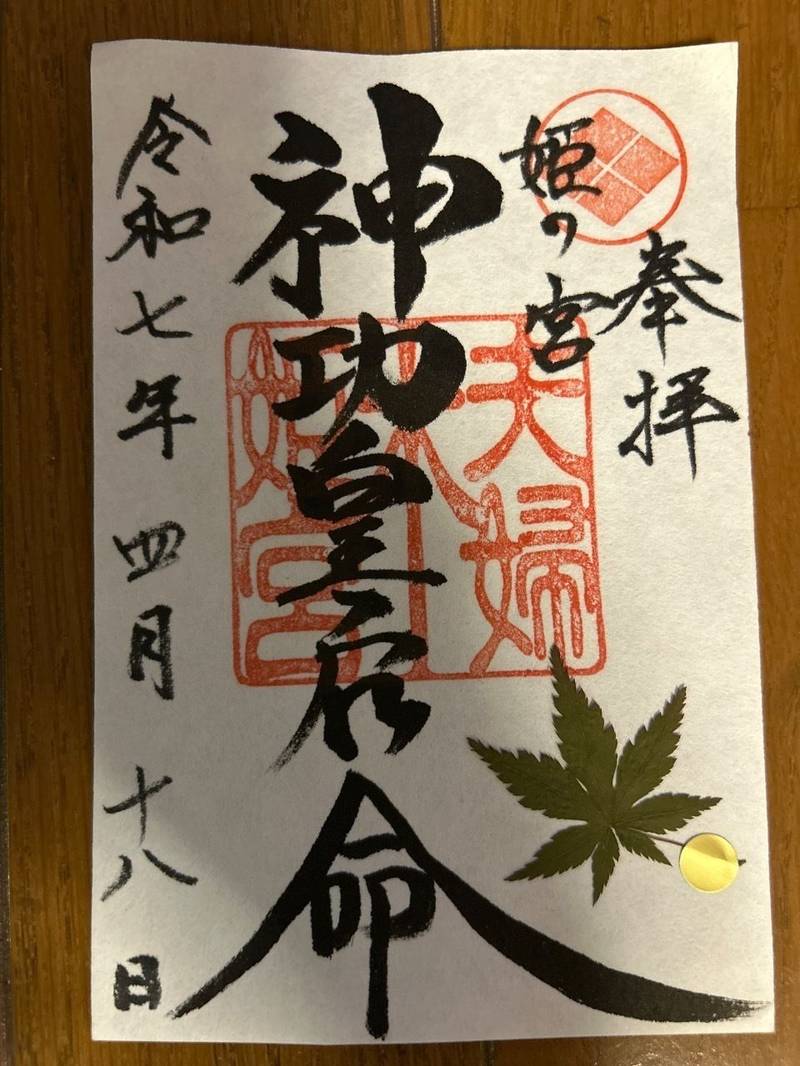 奉拝
姫の宮
神功皇后命
令和七年 四月 十八日
夫婦
姫宮